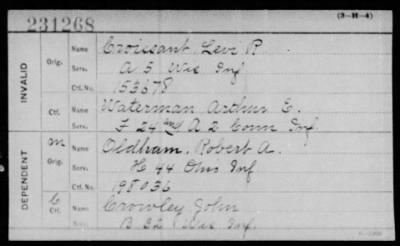 231268
(3-H-4)
INVALID
Orig.
Name Croissant Levi P.
Serv. A 5 Wis Inf
Ctf. No. 153678
Ctf.
Name Waterman, Arthur E.
Serv. F 24 & A 2 Conn Inf
DEPENDENT
M
Orig.
Name Oldham, Robert A.
Serv. H 44 Ohio Inf
Ctf. No. 198036
C
Ctf.
Name Crowley John
Serv. B 32 Wis Inf.